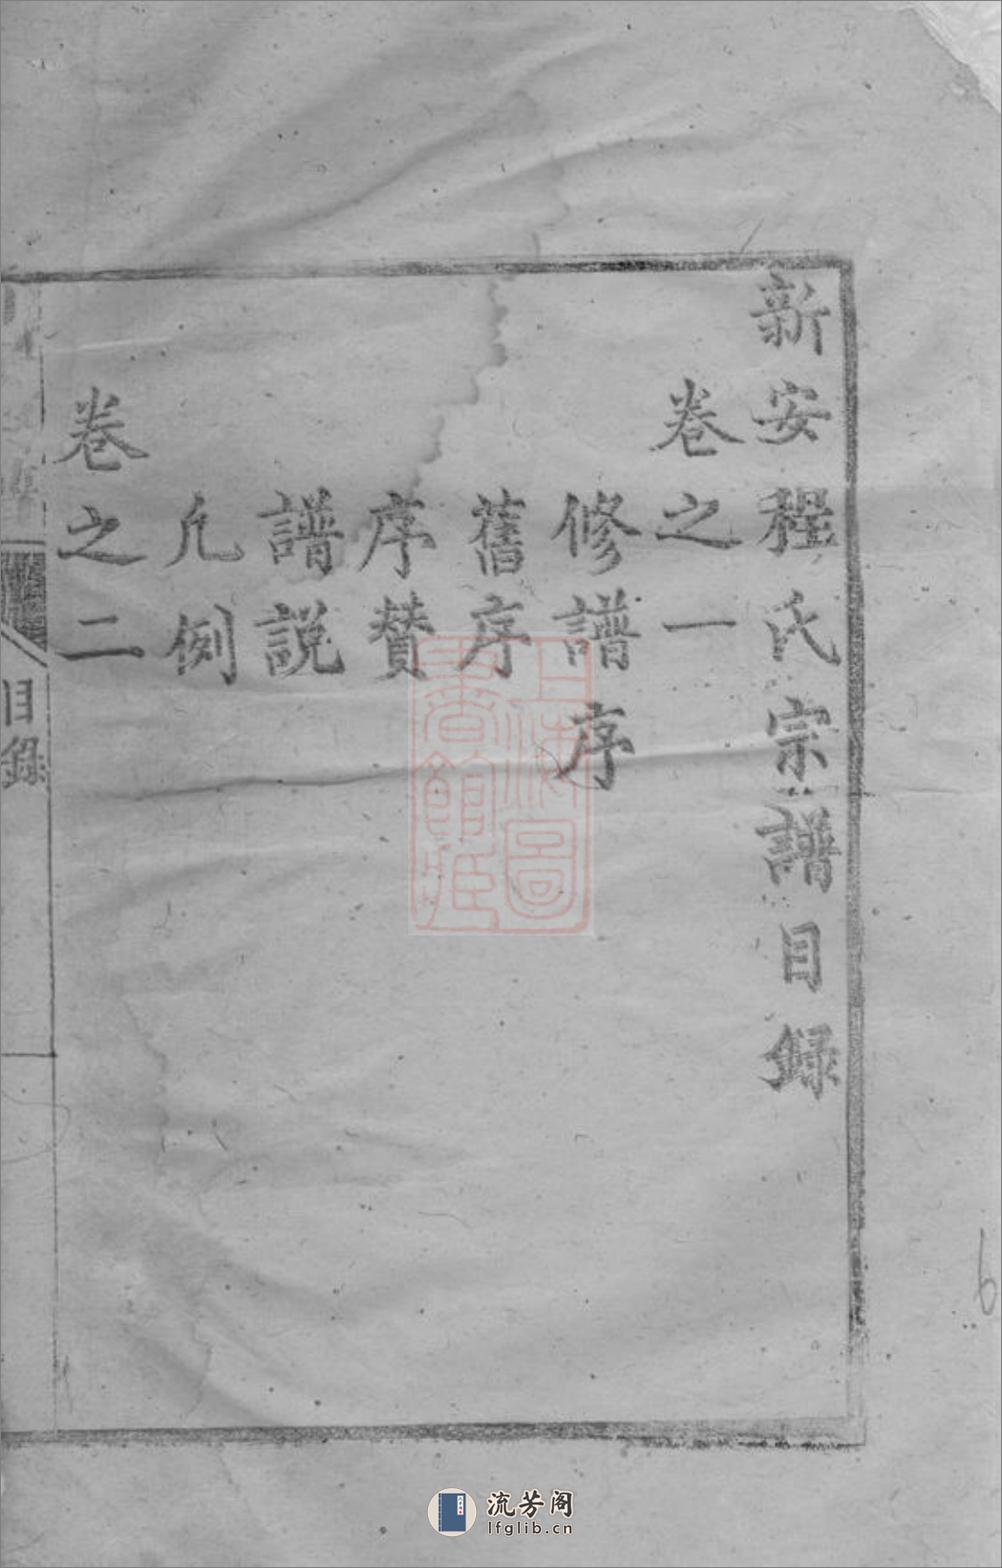 新安程氏宗譜目錄
卷之一
修譜序
舊序
序贊
譜説
凢例
卷之二
目錄
上海圖
書館藏
流芳阁
lfglib.cn
6